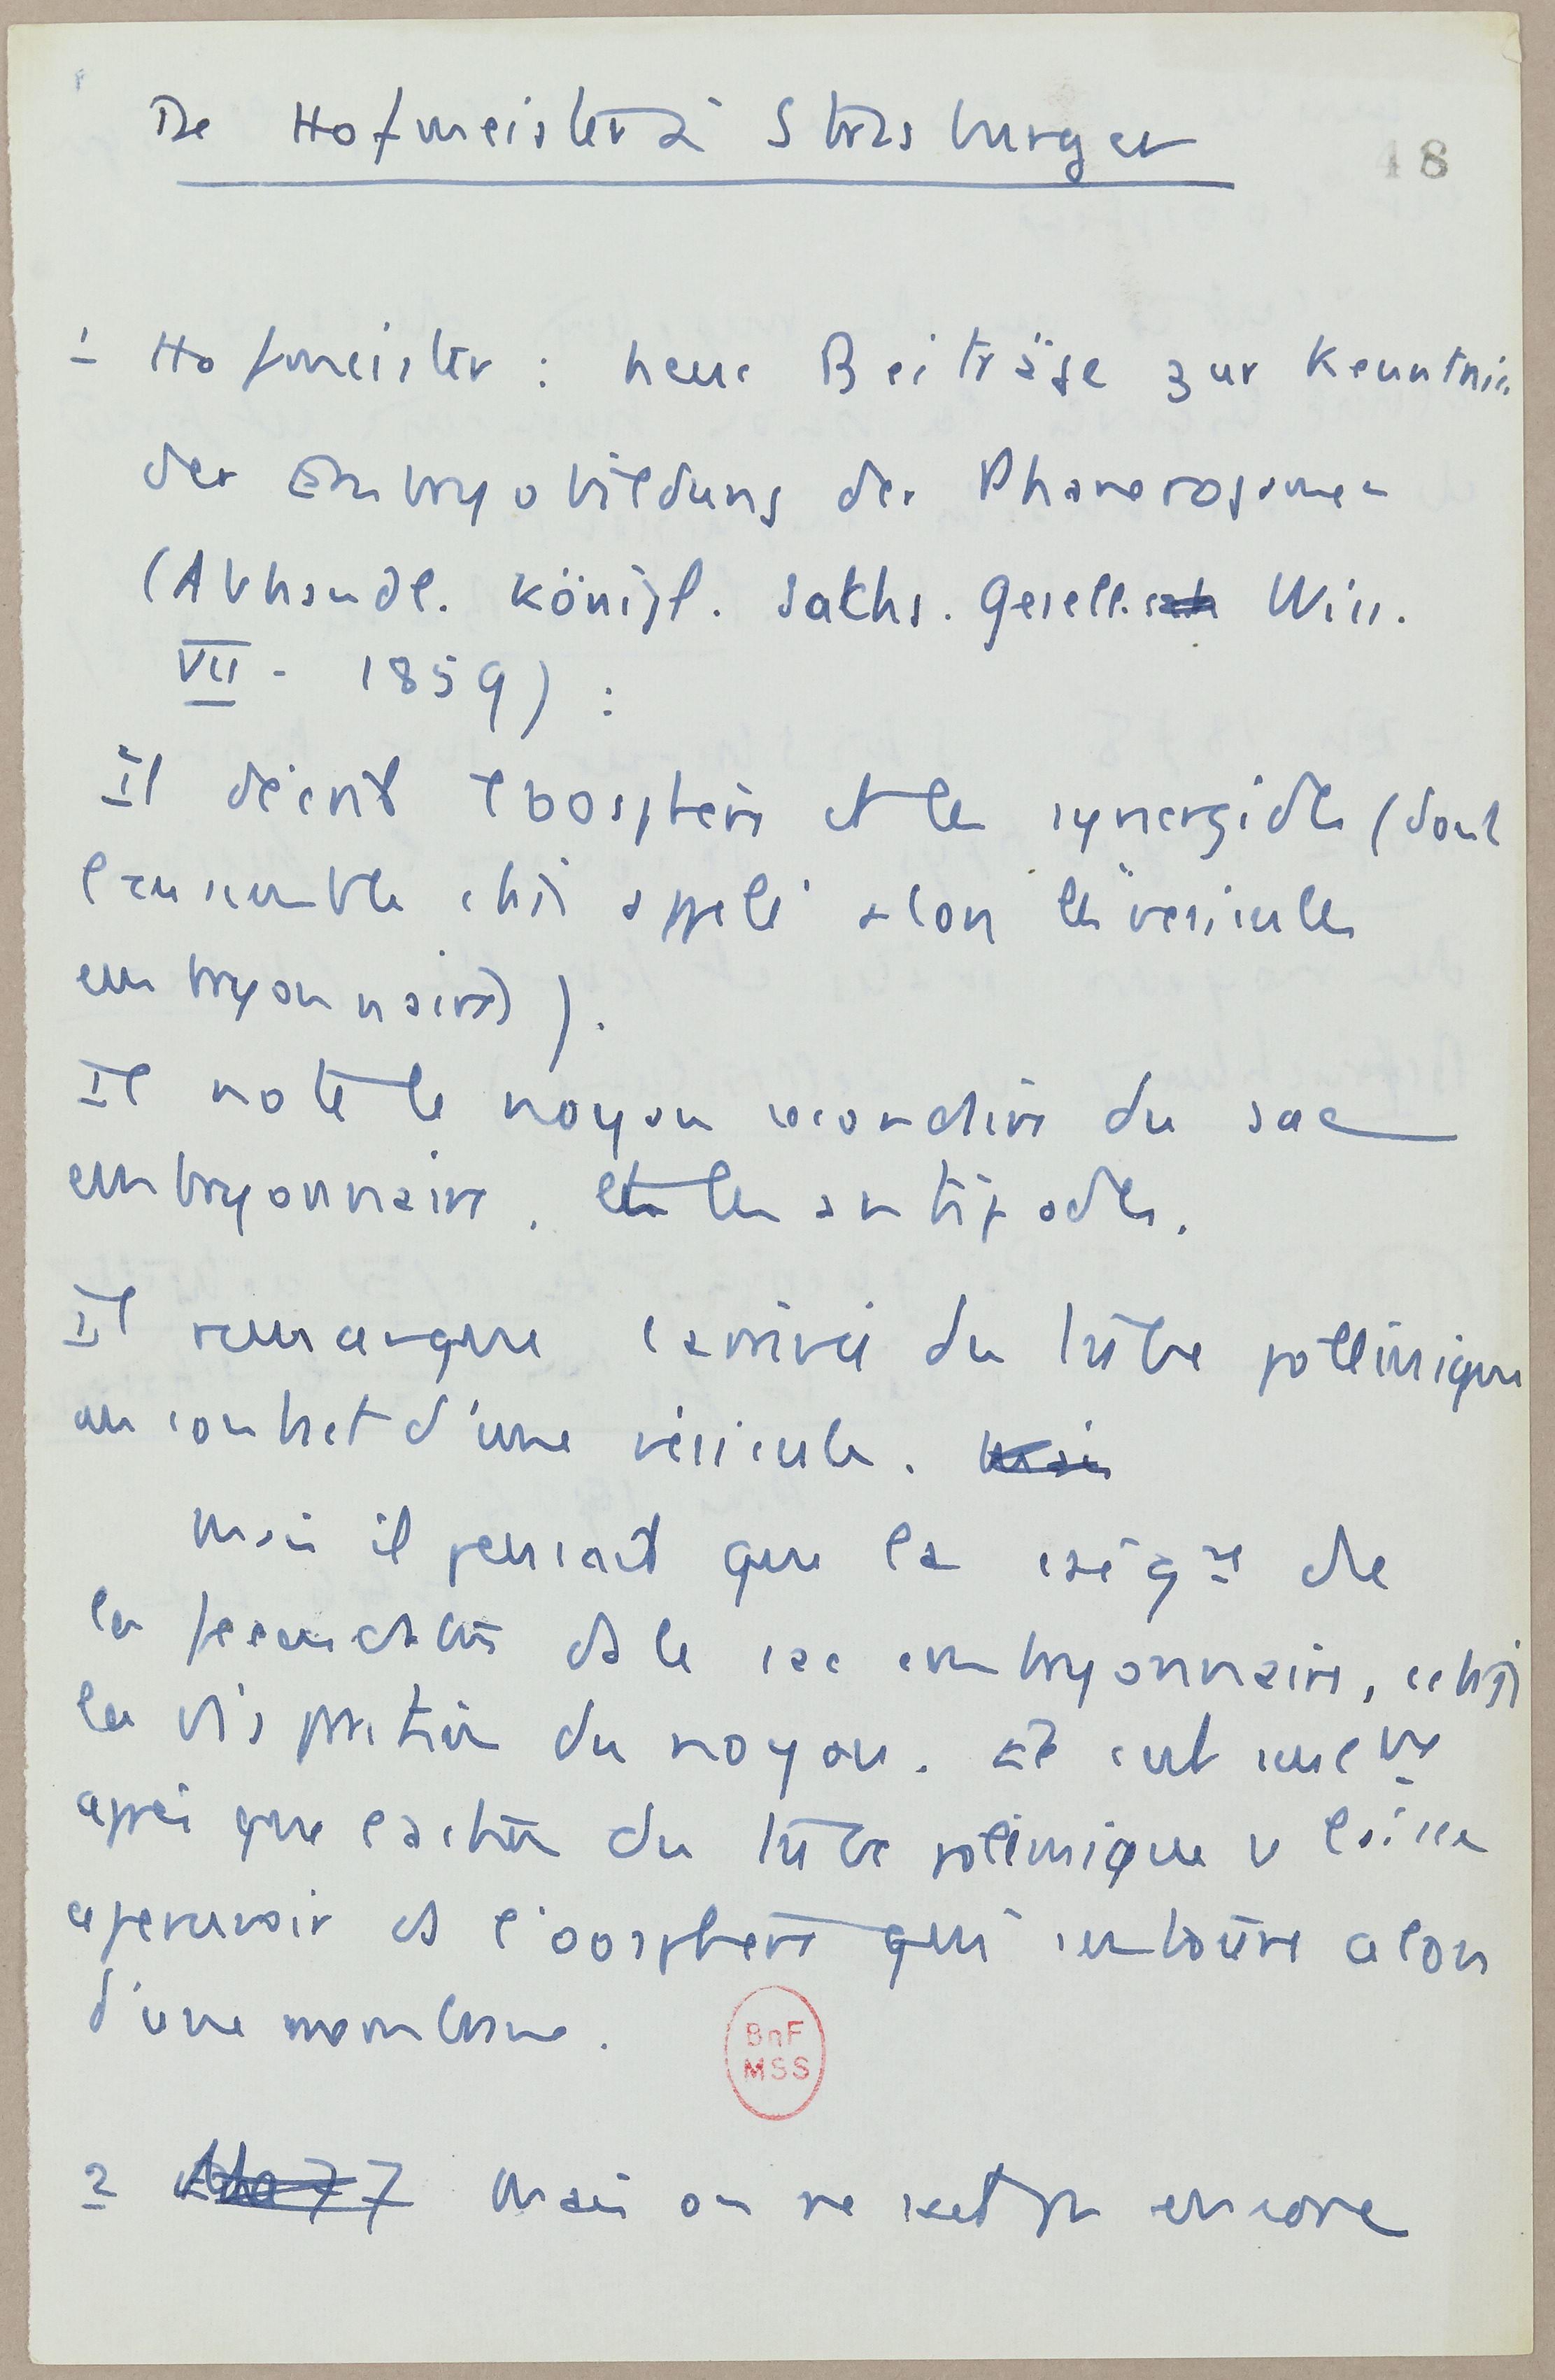 De Hofmeister à Strasburger
48
1 Hofmeister : neue Beiträge zur Kenntnis
der Embryobildung der Phanerogamen
(Abhandl. Königl. Sachs. Gesell. Wiss.
VII - 1859) :
Il décrit l'oosphère et les synergides (dont
l'ensemble était appelé alors les vésicules
embryonnaires)).
Il note le noyau secondaire du sac
embryonnaire. et les antipodes.
Il remarque l'arrivée du tube pollinique
au contact d'une vésicule. Mais
Mais il pensait que la cséq ce de
la fécondation ds le sac embryonnaire, c'était
la disparition du noyau. Et c'est seult
après que l'action du tube pollinique se laisse
apercevoir ds l'oosphère qui s'entoure alors
d'une membrane.
BnF
MSS
2 77 Mais on ne sait pas encore